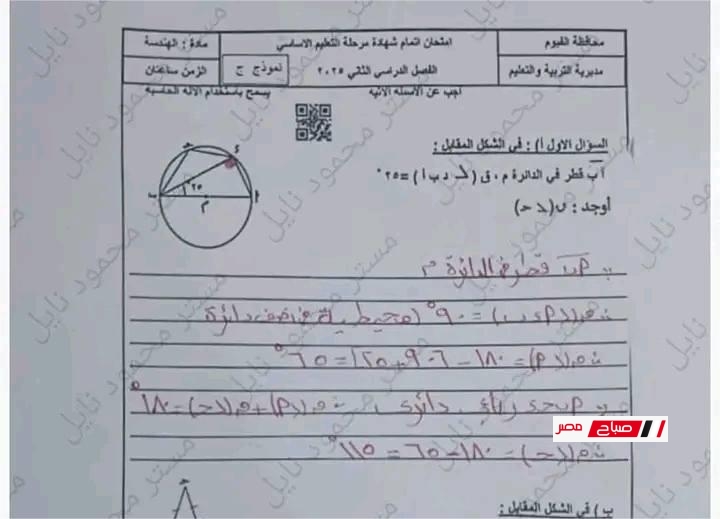 محافظة الفيوم
امتحان اتمام شهادة مرحلة التعليم الاساسي
مادة : الهندسة
مديرية التربية والتعليم
الفصل الدراسي الثاني ٢٠٢٥
نموذج ج
الزمن ساعتان
اجب عن الاسئله الاتيه
يسمح باستخدام الآله الحاسبه
السؤال الاول أ) : في الشكل المقابل :
أب قطر في الدائرة م ، ق ( ∠ د ب أ ) = ٢٥ °
أوجد : ق (∠ حـ)
∵ أب قطر في الدائرة م
∴ ق(∠أ ء ب) = ٩٠° (محيطية في نصف دائرة
∵ أ ب حـ ء رباعى دائرى ∴ ق(∠أ)+ق(∠حـ)=١٨٠°
∴ ق(∠حـ) = ١٨٠ - ٦٥ = ١١٥°
صباح مصر
ب ) في الشكل المقابل :
مستر محمود نايل